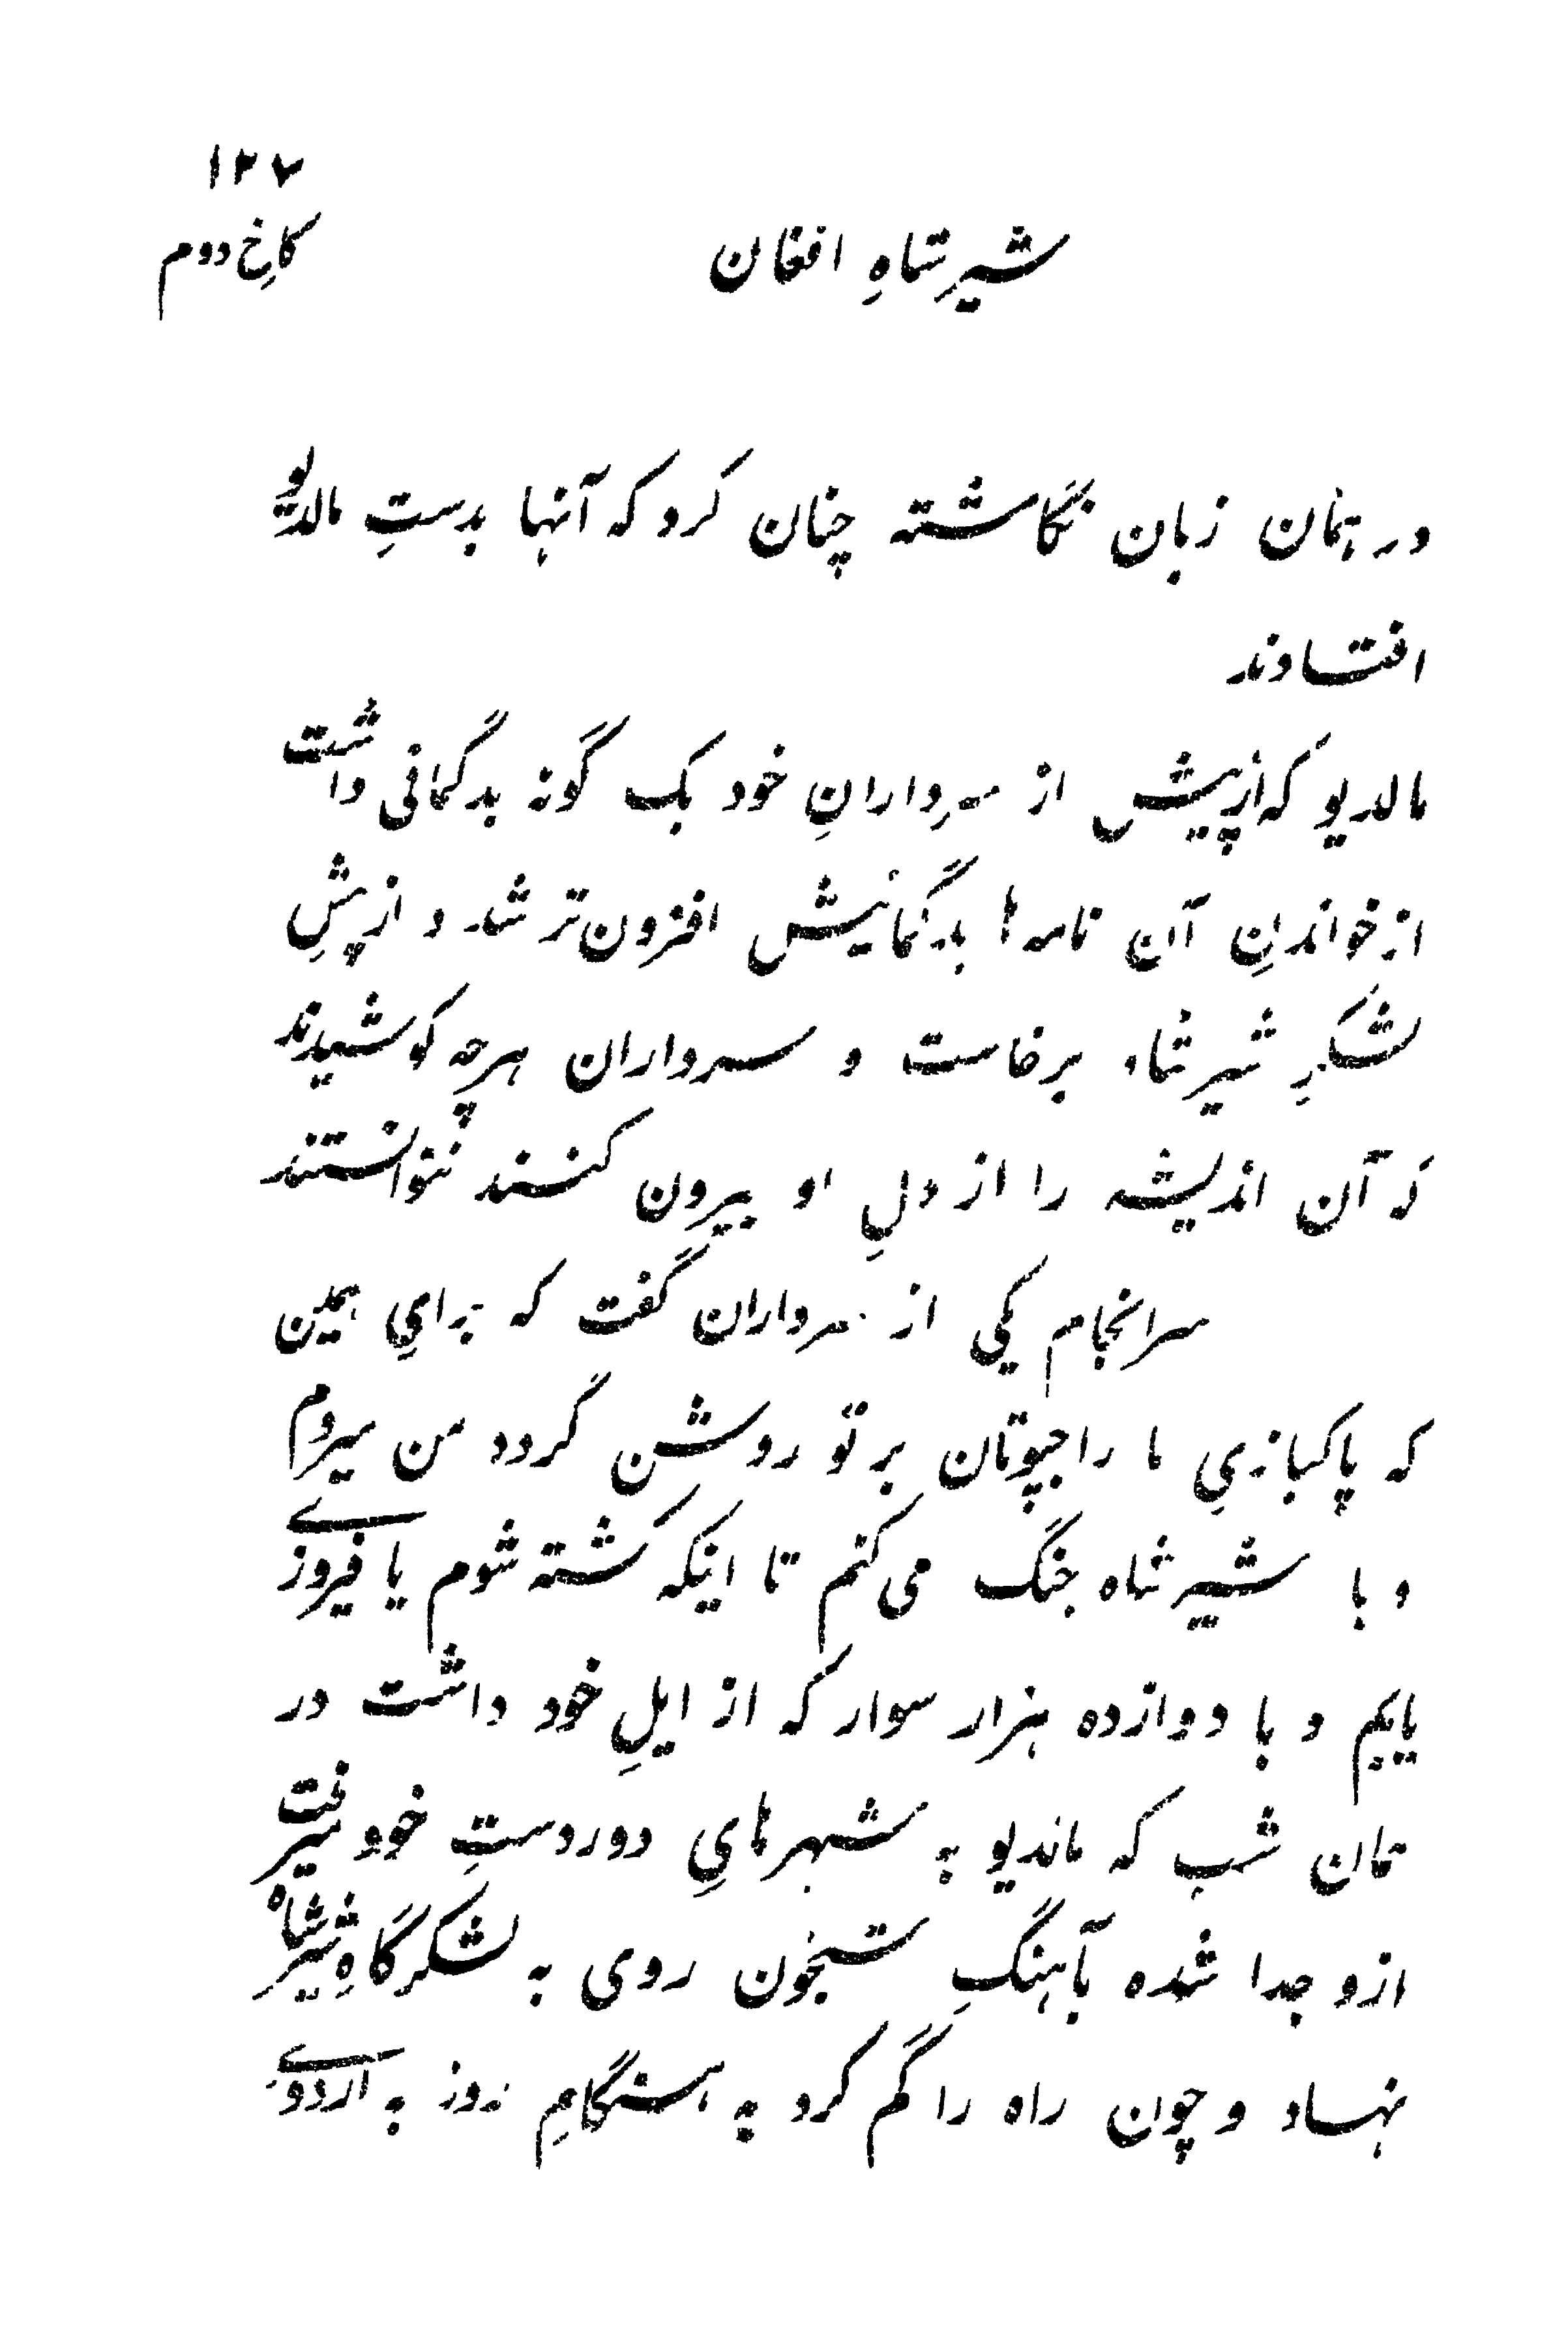 ۱۲۷
کاخِ دوم
شیرشاهِ افغان
در همان زبان نگاشته چنان کرد که آنها بدستِ مالدیو
افتادند
مالدیو که از پیش از سردارانِ خود یک گونه بدگمانی داشت
از خواندنِ آن نامه ها بدگمانیش افزون تر شد و از پیشِ
لشکرِ شیرشاه برخاست و سرداران هرچه کوشیدند
که آن اندیشه را از دلِ او بیرون کنند نتوانستند
سرانجام یکی از سرداران گفت که برای همین
که پاکبازیِ ما راجپوتان بر تو روشن گردد من میروم
و با شیرشاه جنگ می کنم تا اینکه کشته شوم یا فیروزے
یابم و با دوازده هزار سوار که از ایلِ خود داشت در
همان شب که مالدیو به شهرهایِ دور دستِ خود میرفت
ازو جدا شده بآهنگِ شبخون روی به لشکرگاهِ شیرشاه
نهاد و چون راه را گم کرد به هنگامِ روز به اردوے